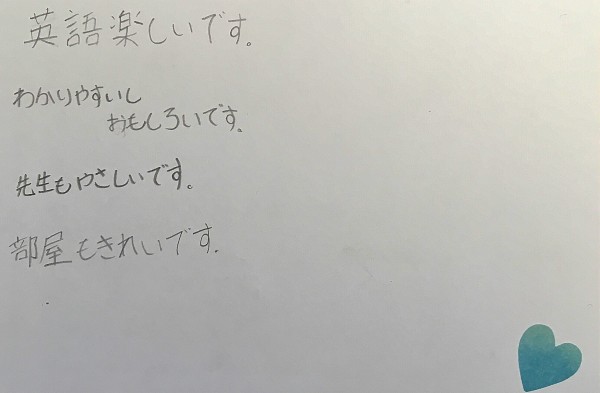 英語楽しいです。
わかりやすいし
おもしろいです。
先生もやさしいです。
部屋もきれいです.